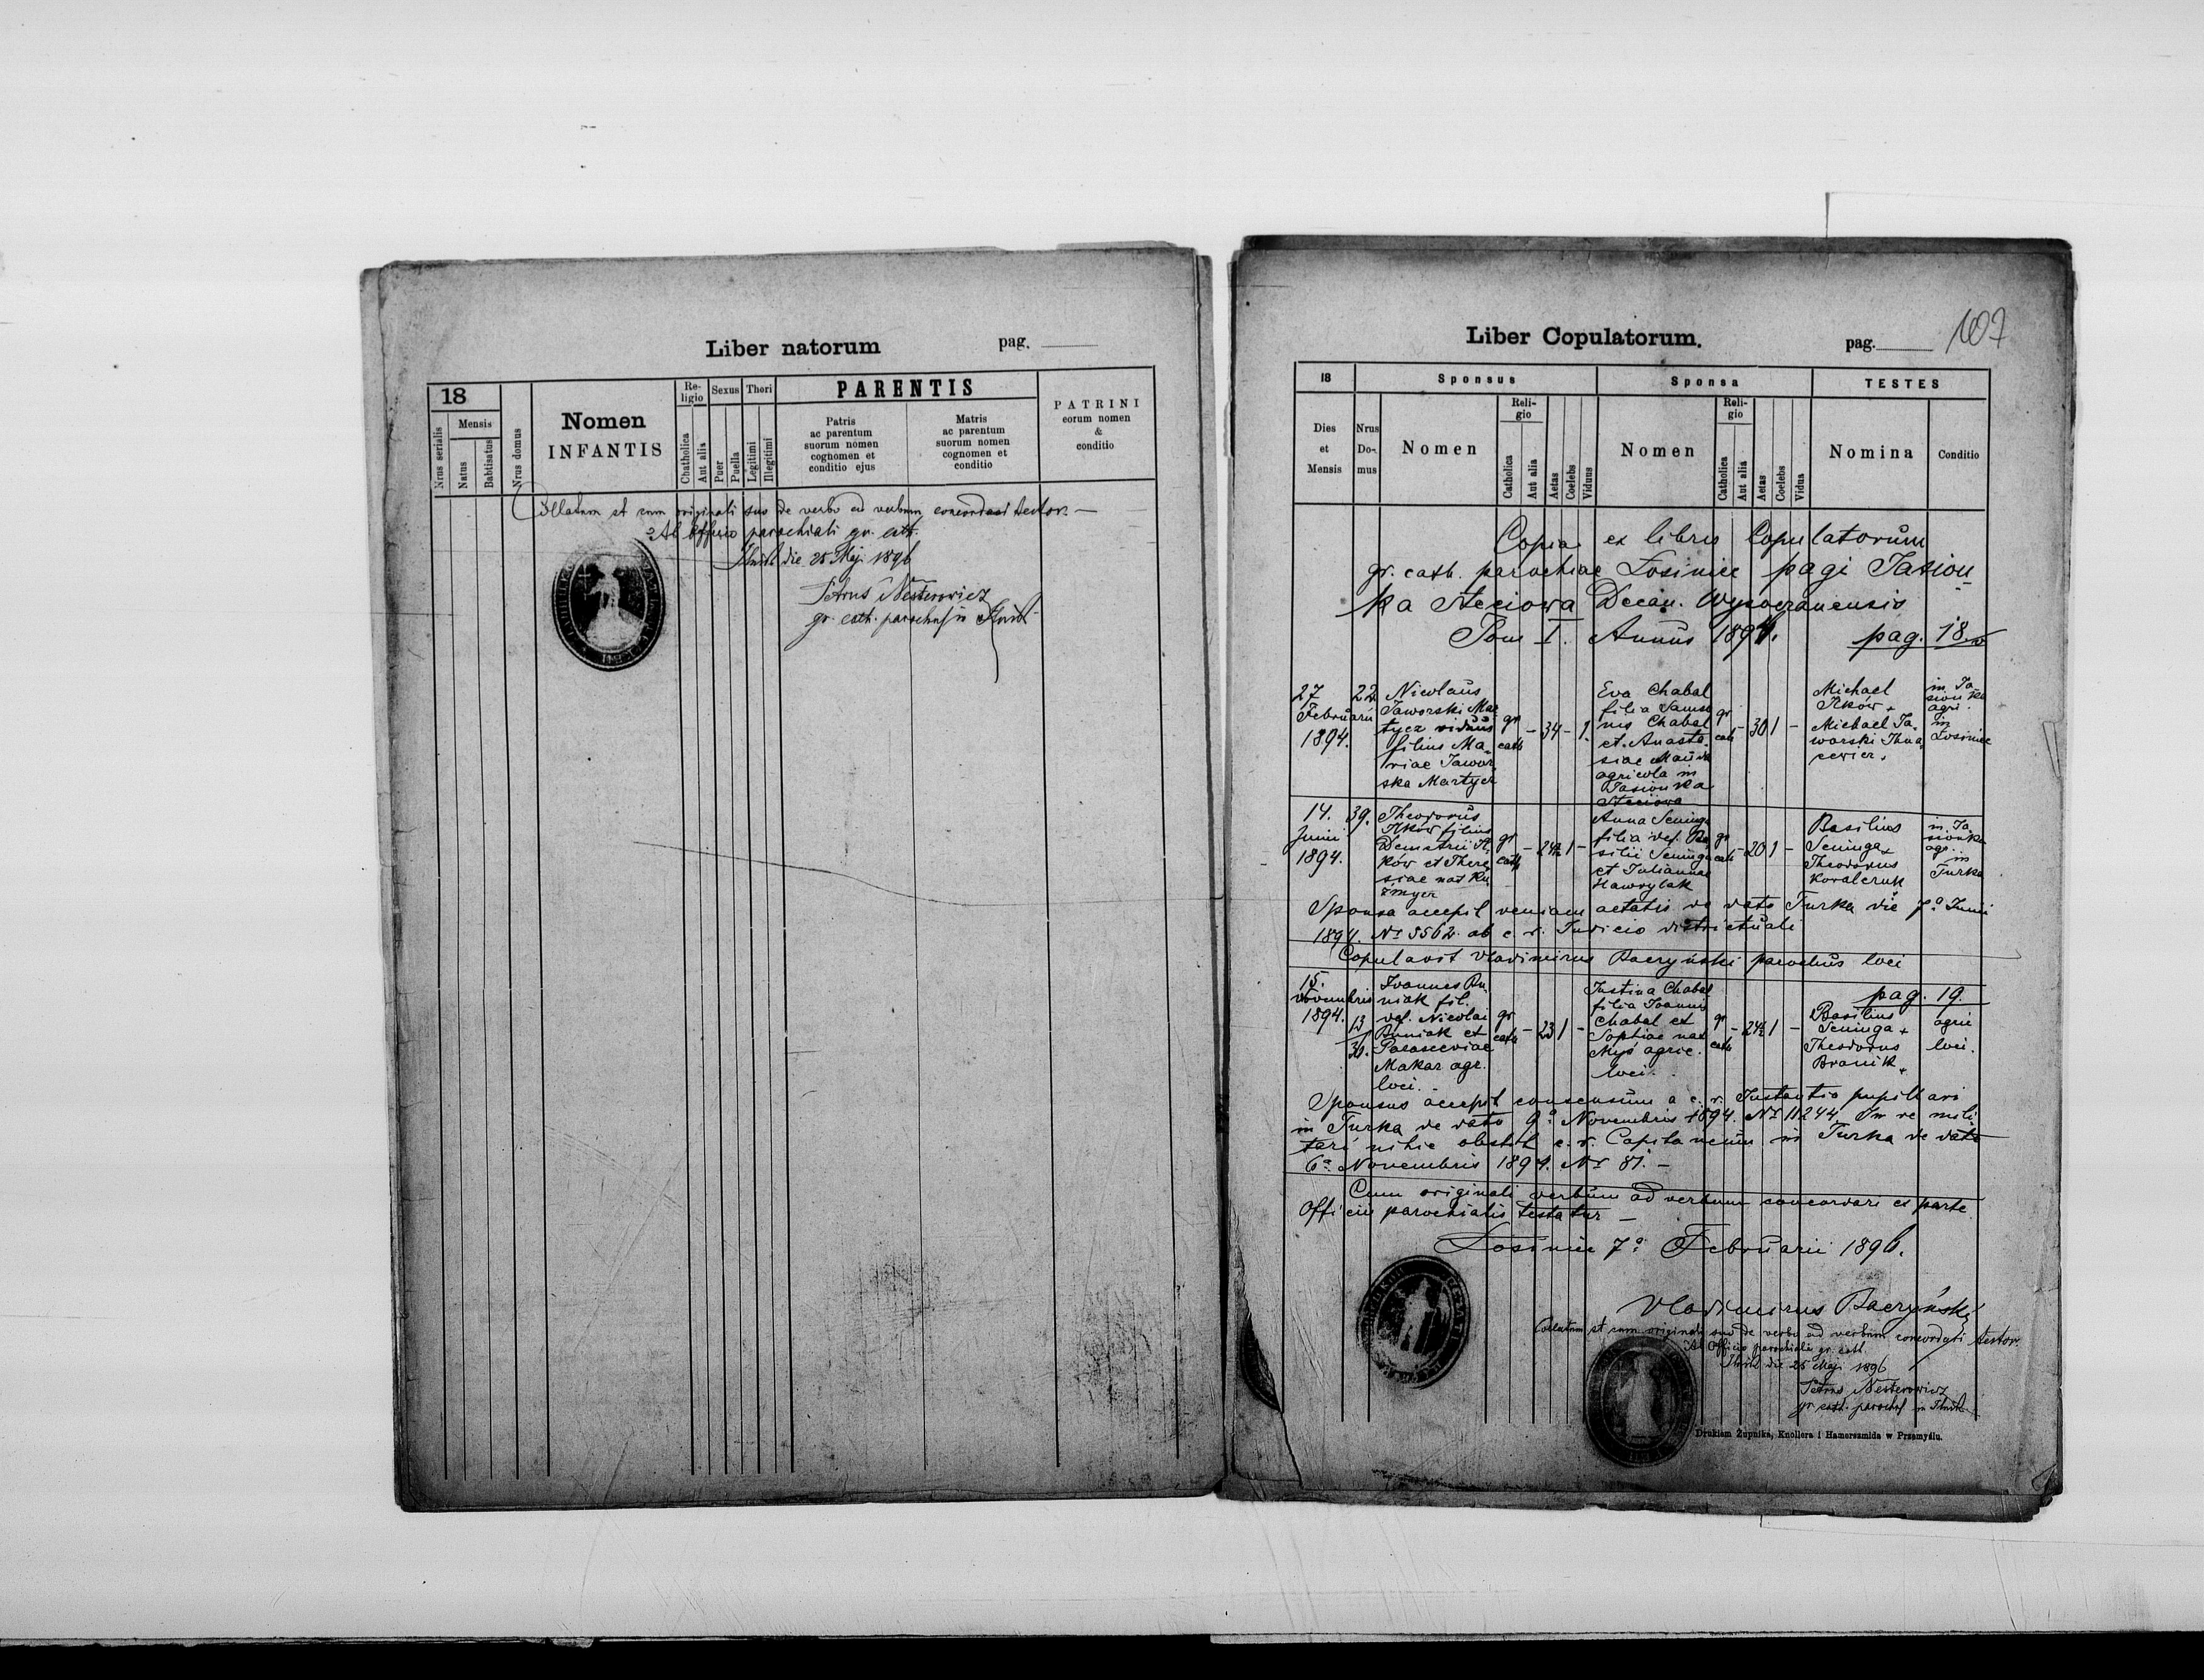 Liber natorum pag.
18
Mensis
Nrus serialis
Natus
Babtisatus
Nrus domus
Nomen
INFANTIS
Re-
ligio
Chatholica
Aut alia
Sexus
Puer
Puella
Thori
Legitimi
Illegitimi
PARENTIS
Patris
ac parentum
suorum nomen
cognomen et
conditio ejus
Matris
ac parentum
suorum nomen
cognomen et
conditio
PATRINI
eorum nomen
&
conditio
Collatum et cum originali suo de verbo ad verbum concordari testor. —
Ab Officio parochiali gr. cath.
die 25 Maji 1896
Petrus Nesterowicz
gr. cath. parochus in
Liber Copulatorum. pag. 107
18
Sponsus
Sponsa
TESTES
Dies
et
Mensis
Nrus
Do-
mus
Nomen
Reli-
gio
Catholica
Aut alia
Aetas
Coelebs
Viduus
Nomen
Reli-
gio
Catholica
Aut alia
Aetas
Coelebs
Vidua
Nomina
Conditio
Copia ex libris Copulatorum
gr. cath. parochiae Łosiniec pagi Jasion
ka Steciowa Decan. Wysoczanensis
Tom I. Annus 1894. pag. 18
27
Februarii
1894.
22
Nicolaus
Jaworski Mar
tycz viduus
filius Ma-
riae Jawor
ska Martycz
gr
cath
- 34 - 1.
Eva Chabal
filia Samso
nis Chabal
et Anasta-
siae
agricola in
Jasionka
Steciowa
gr
cath
- 30 1 -
Michael
Ilków +
Michael Ja-
worski
cewicz.
in Ja-
sionka
agri.
in
Łosiniec
14.
Junii
1894.
39.
Theodorus
Ilków filius
Demetrii Il
ków et There
siae nat Ku
zmycz
gr
cath
- 24½ 1 -
Anna Seninga
filia def. Ba
silii Seninga
et Julianna
Hawrylak
gr
cath
- 20 1 -
Basilius
Seninga +
Theodorus
Kovalczuk
in Ja
sionka
agr.
in
Turka
Sponsa accepit veniam aetatis de dato Turka die 7ª Junii
1894. Nr 5562 ab c. r. Judicio districtuali
Copulavit Vladimirus Baczyński parochus loci
pag. 19.
15.
Novembris
1894.
13
36.
Ioannes Bu
niak fil.
def. Nicolai
Buniak et
Parasceviae
Makar agr.
loci.
gr
cath
- 23 1 -
Justina Chabal
filia Joannis
Chabal et
Sophiae nat
Myś agric.
loci.
gr
cath
- 24½ 1 -
Basilius
Seninga +
Theodorus
Branik +
agric
loci.
Sponsus accepit consensum a c. r. Instantia pupillari
in Turka de dato 9ª Novembris 1894. Nr 11244. In re mili
tari nihil obstat c. r. Capitaneum in Turka de dato
6ª Novembris 1894. Nr 81. -
Cum originali verbum ad verbum concordari ex parte
Officii parochialis testatur —
Łosiniec 7ª Februarii 1896.
Vladimirus Baczyński
Collatum et cum originali suo de verbo ad verbum concordari testor.
Ab Officio parochiali gr. cath.
die 25 Maji 1896
Petrus Nesterowicz
gr. cath. parochus in
Drukiem Żupnika, Knollera i Hamerszmida w Przemyślu.